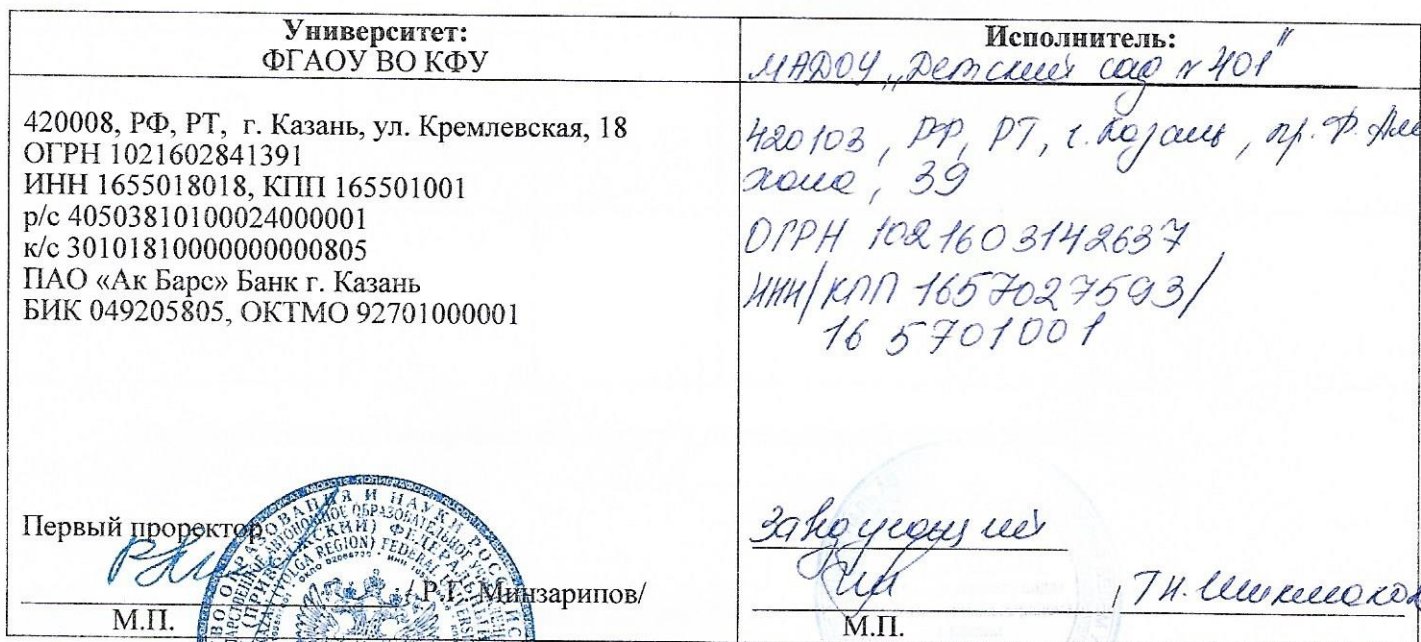 Университет:
ФГАОУ ВО КФУ
420008, РФ, РТ, г. Казань, ул. Кремлевская, 18
ОГРН 1021602841391
ИНН 1655018018, КПП 165501001
р/с 40503810100024000001
к/с 30101810000000000805
ПАО «Ак Барс» Банк г. Казань
БИК 049205805, ОКТМО 92701000001
Первый проректор
/ Р.Г. Минзарипов/
М.П.
Исполнитель:
МАДОУ „Детский сад № 401"
420103, РФ, РТ, г. Казань, пр. Ф. Амирхана, 39
ОГРН 1021603142637
ИНН/КПП 1657027593/
165701001
Заведующий
М.П.